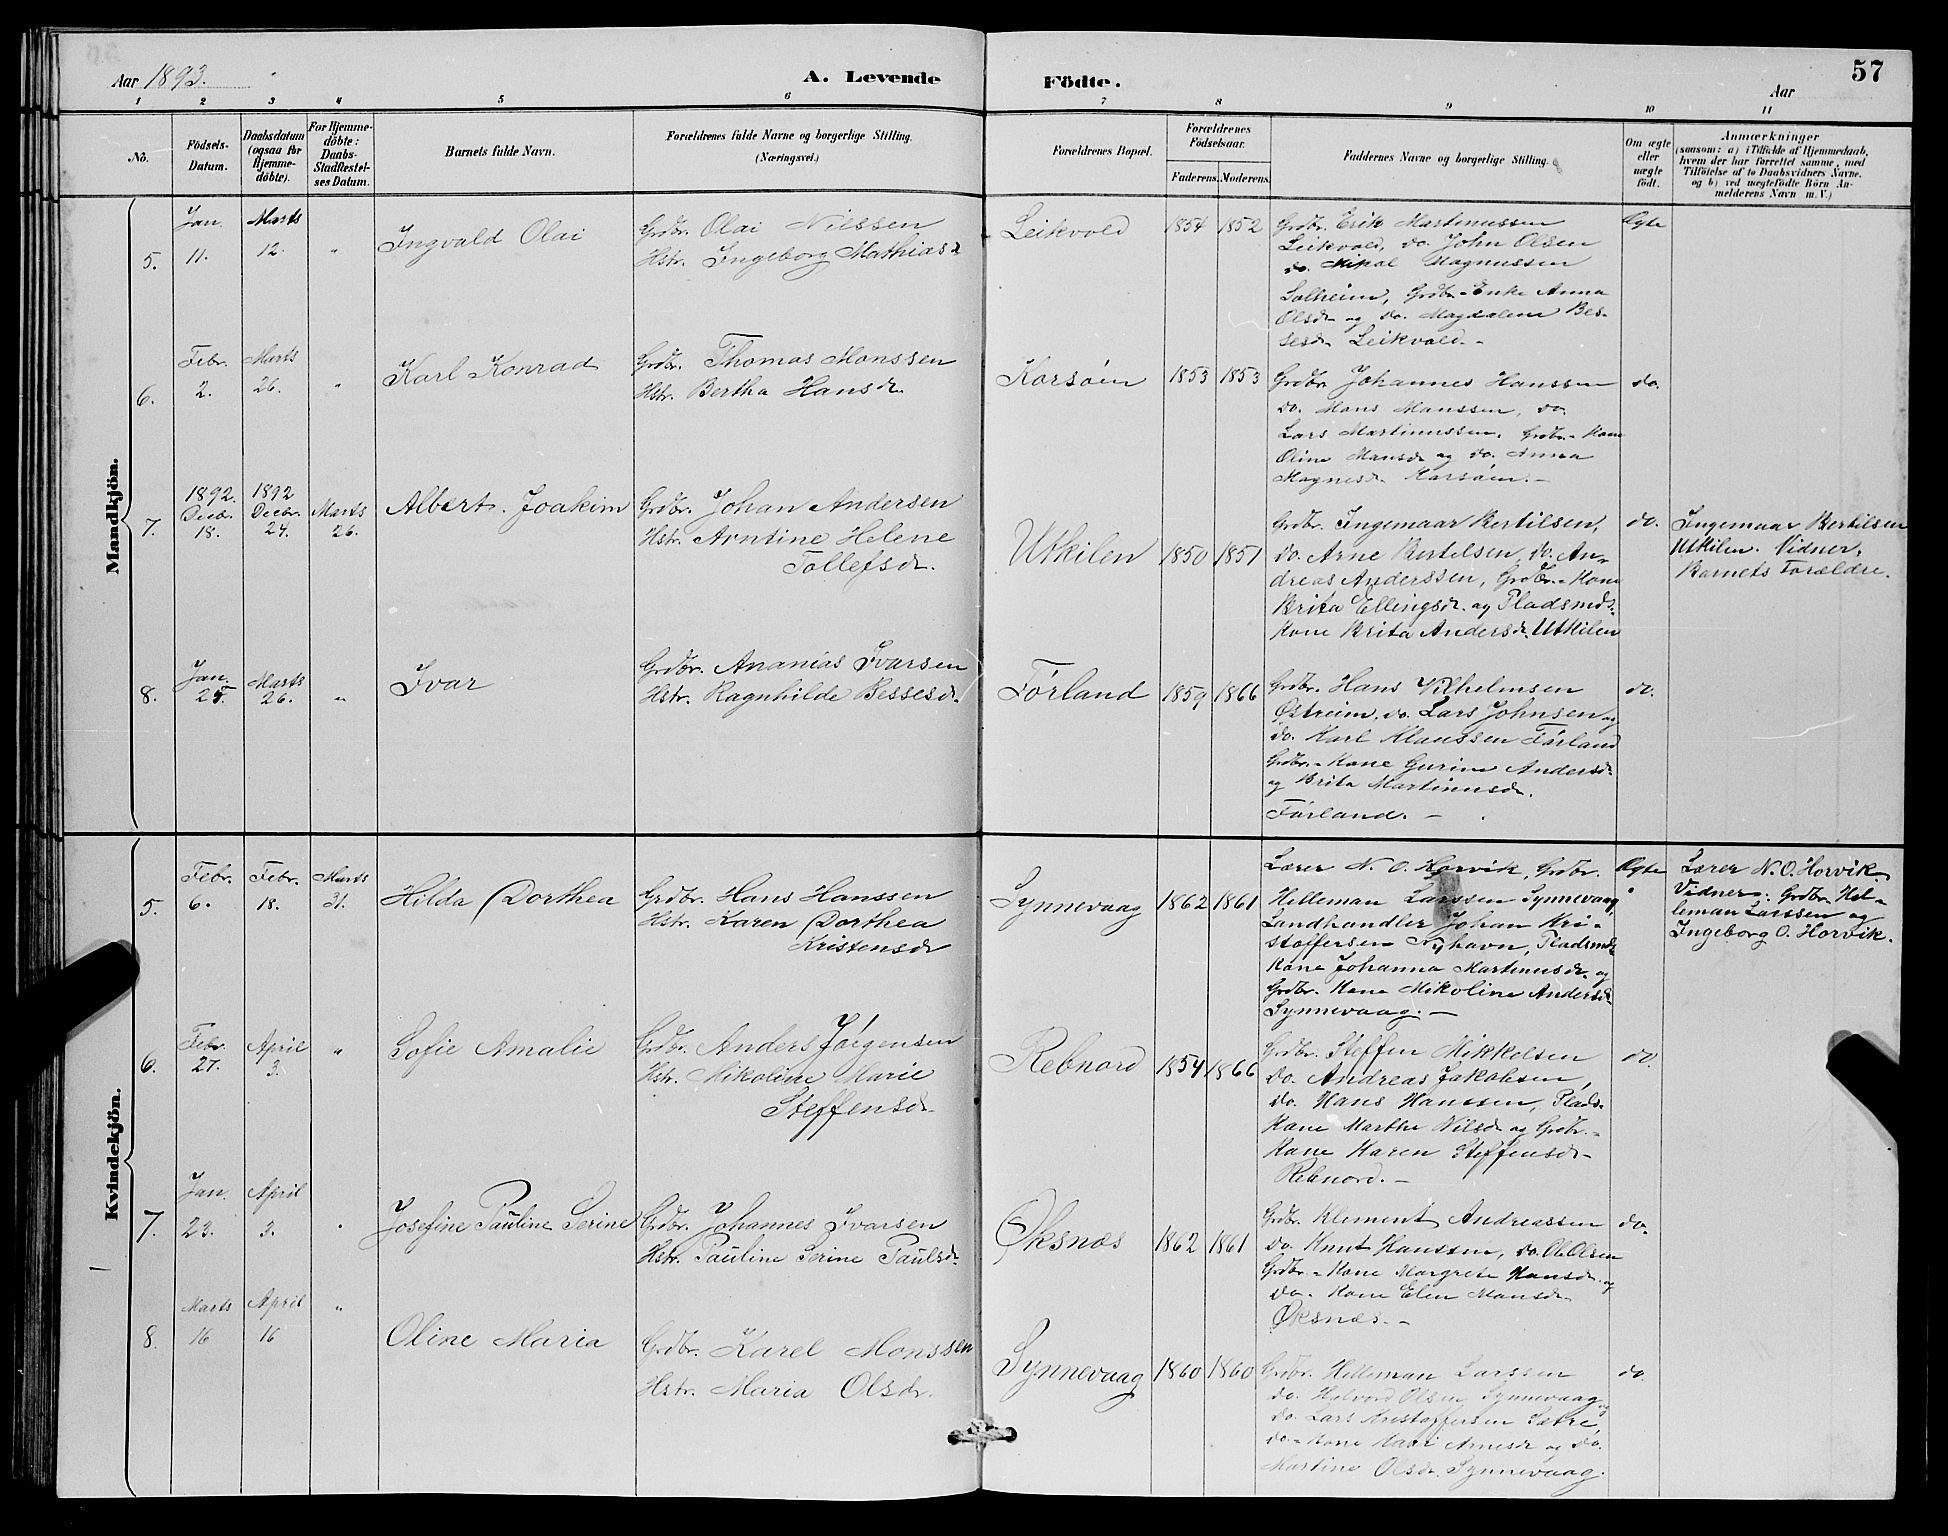 Aar 1893.
A. Levende
Födte.
Aar
57
1 2 3 4 5 6 7 8 9 10 11
No.
Födsels-
Datum.
Daabsdatum
(ogsaa for
Hjemme-
döbte).
For Hjemme-
döbte:
Daabs-
Stadfæstel-
ses Datum.
Barnets fulde Navn.
Forældrenes fulde Navne og borgerlige Stilling.
(Næringsvei.)
Forældrenes Bopæl.
Forældrenes
Födselsaar.
Faderens. Moderens.
Faddernes Navne og borgerlige Stilling.
Om ægte
eller
uægte
födt.
Anmærkninger
(saasom: a) i Tilfælde af Hjemmedaab,
hvem der har forrettet samme, med
Tilföielse af to Daabsvidners Navne.
og b) ved uægtefödte Börn An-
melderens Navn m. V.)
Mandkjön.
5.
Jan.
11.
Marts
12.
"
Ingvald Olai
Grdbr. Olai Nilssen
Hstr. Ingeborg Mathiasd.
Leikvold
1854 1852
Grdbr. Erik Martinussen
Leikvold, do. John Olsen
do. Mikal Magnussen
Solheim, Grdbr.-Enke Anna
Olsdr. og do. Magdalena Bes-
sesdr. Leikvold. -
Ægte
6.
Febr.
2.
Marts
26.
"
Karl Konrad
Grdbr. Thomas Monssen
Hstr. Bertha Hansdr.
Korsøen
1853 1853
Grdbr. Johannes Hanssen
do. Mons Monssen, do.
Lars Martinussen. Grdbr.-Kone
Oline Monsdr. og do. Anna
Magnesdr. Korsøen. -
do.
7.
1892.
Decbr.
18.
1892
Decbr.
24.
Marts
26.
Albert Joakim
Grdbr. Johan Andersen
Hstr. Arntine Helene
Tollefsdr.
Utkilen
1850 1851
Grdbr. Ingemaar Bertilsen,
do. Arne Bertelsen, do. An-
dreas Anderssen, Grdbr.-Kone
Brita Ellingsdr. og Pladsmds.
Kone Brita Andersdr. Utkilen
do.
Ingemaar Bertilsen
Utkilen. Vidner.
Barnets Forældre.
8.
Jan.
25.
Marts
26.
"
Ivar
Grdbr. Ananias Ivarsen
Hstr. Ragnhilde Bessesdr.
Førland
1859 1866
Grdbr. Hans Vilhelmsen
Østreim, do. Lars Johnsen og
do. Karl Klaussen Førland
Grdbr.-Kone Gurine Andersdr.
og Brita Martinusdr.
Førland. -
do.
Kvindekjön.
5.
Febr.
6.
Febr.
18.
Marts
31.
Hilda Dorthea
Grdbr. Hans Hanssen
Hstr. Karen Dorthea
Kristensdr.
Synnevaag
1862 1861
Lærer N. O. Horvik, Grdbr.
Helleman Larssen Synnevaag,
Landhandler Johan Kri-
stoffersen Nyhavn, Pladsmds
Kone Johanna Martinusdr. og
Grdbr. Kone Mikoline Andersdr.
Synnevaag. -
Ægte
Lærer N. O. Horvik.
Vidner: Grdbr. Hel-
leman Larssen og
Ingeborg O. Horvik.
6.
Febr.
27.
April
3.
"
Sofie Amalie
Grdbr. Anders Jörgensen
Hstr. Mikoline Marie
Steffensdr.
Rebnord
1854 1866
Grdbr. Steffen Mikkelsen
do. Andreas Jakobsen,
do. Hans Hanssen, Plads.
Kone Marthe Nilsdr. og Grdbr.-
Kone Karen Steffensdr.
Rebnord. -
do.
7.
Jan.
23.
April
3.
"
Josefine Pauline Serine
Grdbr. Johannes Ivarsen
Hstr. Pauline Serine Paulsdr.
Øksnæs
1862 1861
Grdbr. Klement Andreassen
do. Knut Hanssen, do. Ole Olsen
Grdbr.-Kone Margrete Hansdr. og
do.-Kone Elen Monsdr.
Øksnæs. -
do.
8.
Marts
16
April
16
"
Oline Maria
Grdbr. Karel Monssen
Hstr. Maria Olsdr.
Synnevaag
1860 1860
Grdbr. Helleman Larssen
do. Halvord Olsen Synnevaag og
do. Lars Kristoffersen Sætre,
do.-Kone Kari Arnesdr. og do.
Martine Olsdr. Synnevaag.
do.